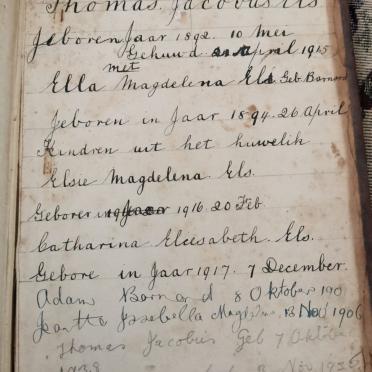 Thomas. Jacobus Els
Jeboren Jaar 1892. 10 Mei
Gehuwd. 21 April 1915
met
Ella Magdelena Els Geb Barnard
Jeboren in Jaar 1894. 26 April
Kindren uit het huwelik
Elsie Magdelena. Els.
Geboren in Jaar 1916. 20 Feb
Catharina Elcesabeth. Els.
Gebore in Jaar 1917. 7 December.
Adam Barnard 8 Oktober 190
Jssebella 13 Nov 1906
Thomas Jacobus Geb 7 Oktober
Nov